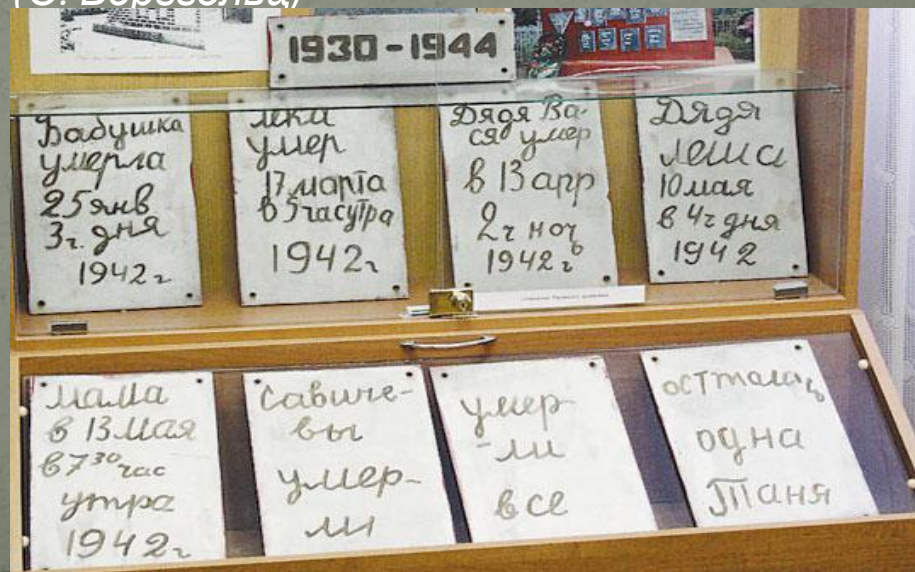 1930-1944
Бабушка
умерла
25 янв
3ч. дня
1942г
лека
умер
17 марта
в 5 час утра
1942г
Дядя Ва-
ся умер
в 13 апр
2ч ночь
1942г
Дядя
Леша
10 мая
в 4ч дня
1942
мама
в 13 мая
в 7 30 час
утра
1942г
Савиче-
вы
умер-
ли
умер-
-ли
все
осталась
одна
Таня